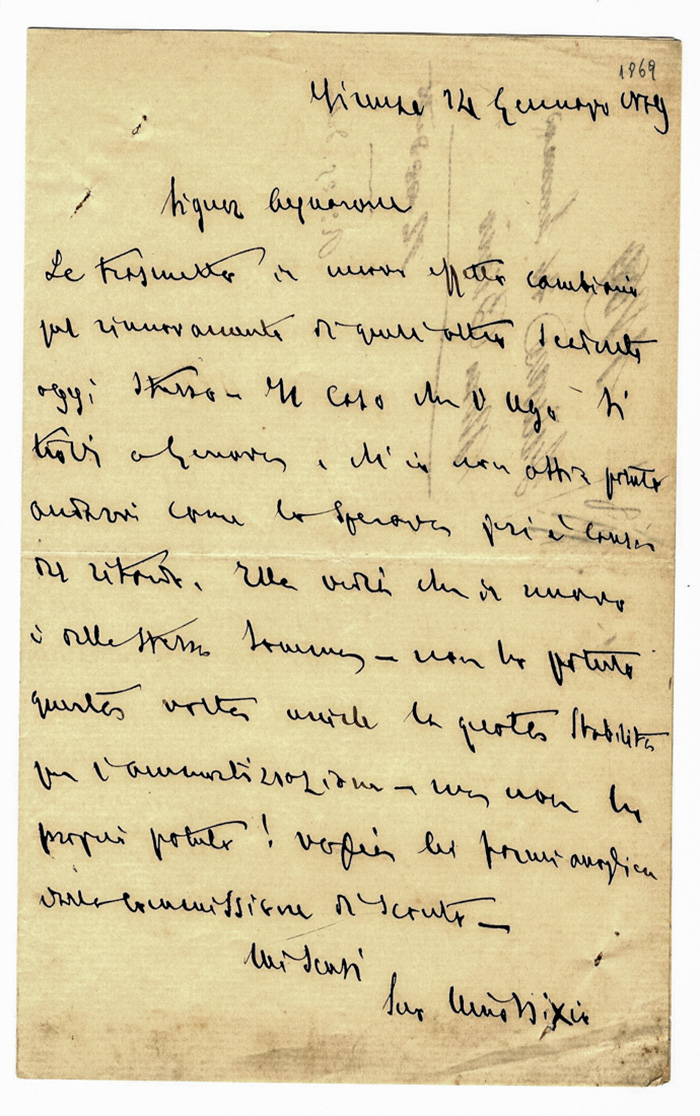 1869
Firenze 24 Gennajo 1869
Signor
Le trasmetto il nuovo effetto cambiario
pel rinnovamento di quell'altro scadente
oggi stesso – Il caso che V
trovi a Genova, ch'io non abbia potuto
andarvi come lo sperava è causa
del ritardo. Ella vedrà che il nuovo
è della stessa somma – non ho potuto
questa volta unirle la quota stabilita
per l'ammortizzazione – ma non ho
proprio potuto! voglia
commissione di sconto –
Mi scusi
Suo Nino Bixio